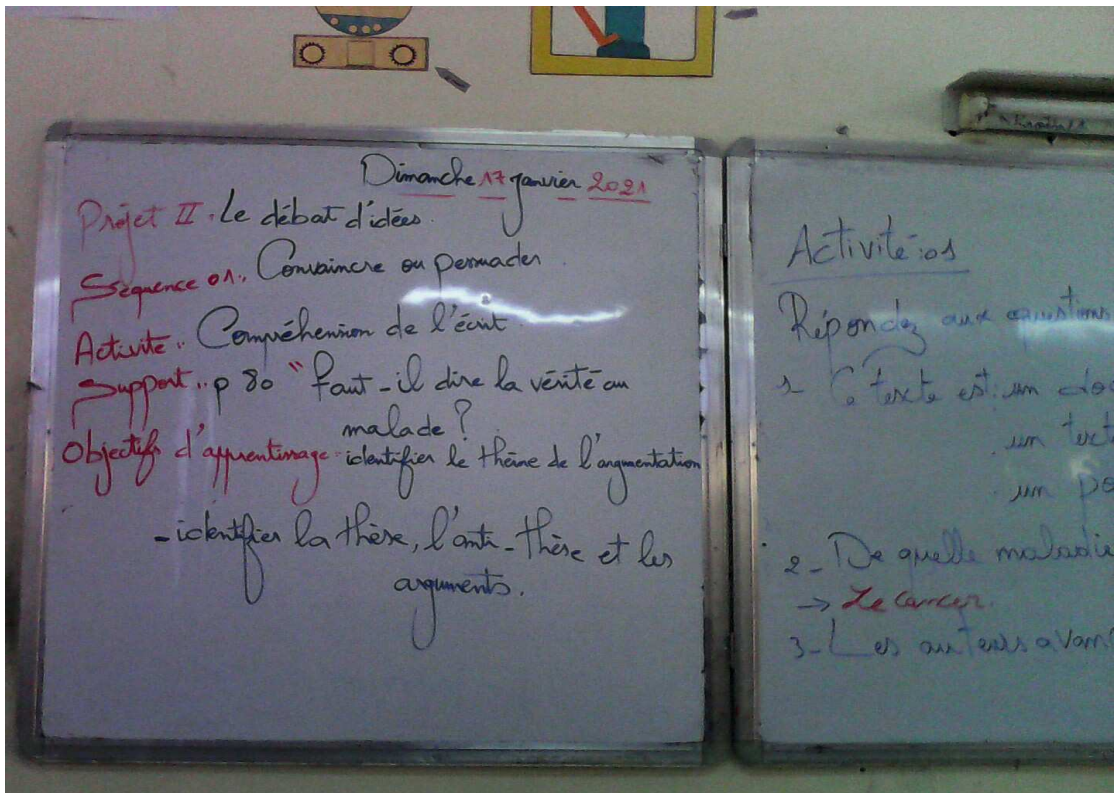 Dimanche 17 janvier 2021
Projet II. Le débat d'idées.
Séquence 01.. Convaincre ou persuader.
Activité.. Compréhension de l'écrit.
Support.. p 80 " Faut-il dire la vérité au
malade ?
Objectifs d'apprentissage - identifier le thème de l'argumentation
- identifier la thèse, l'anti-thèse et les
arguments.
Activité: 01
Répondez aux questions
1- Ce texte est: un do
. un text
. un po
2- De quelle maladie
→ Le cancer.
3- Les auteurs avan